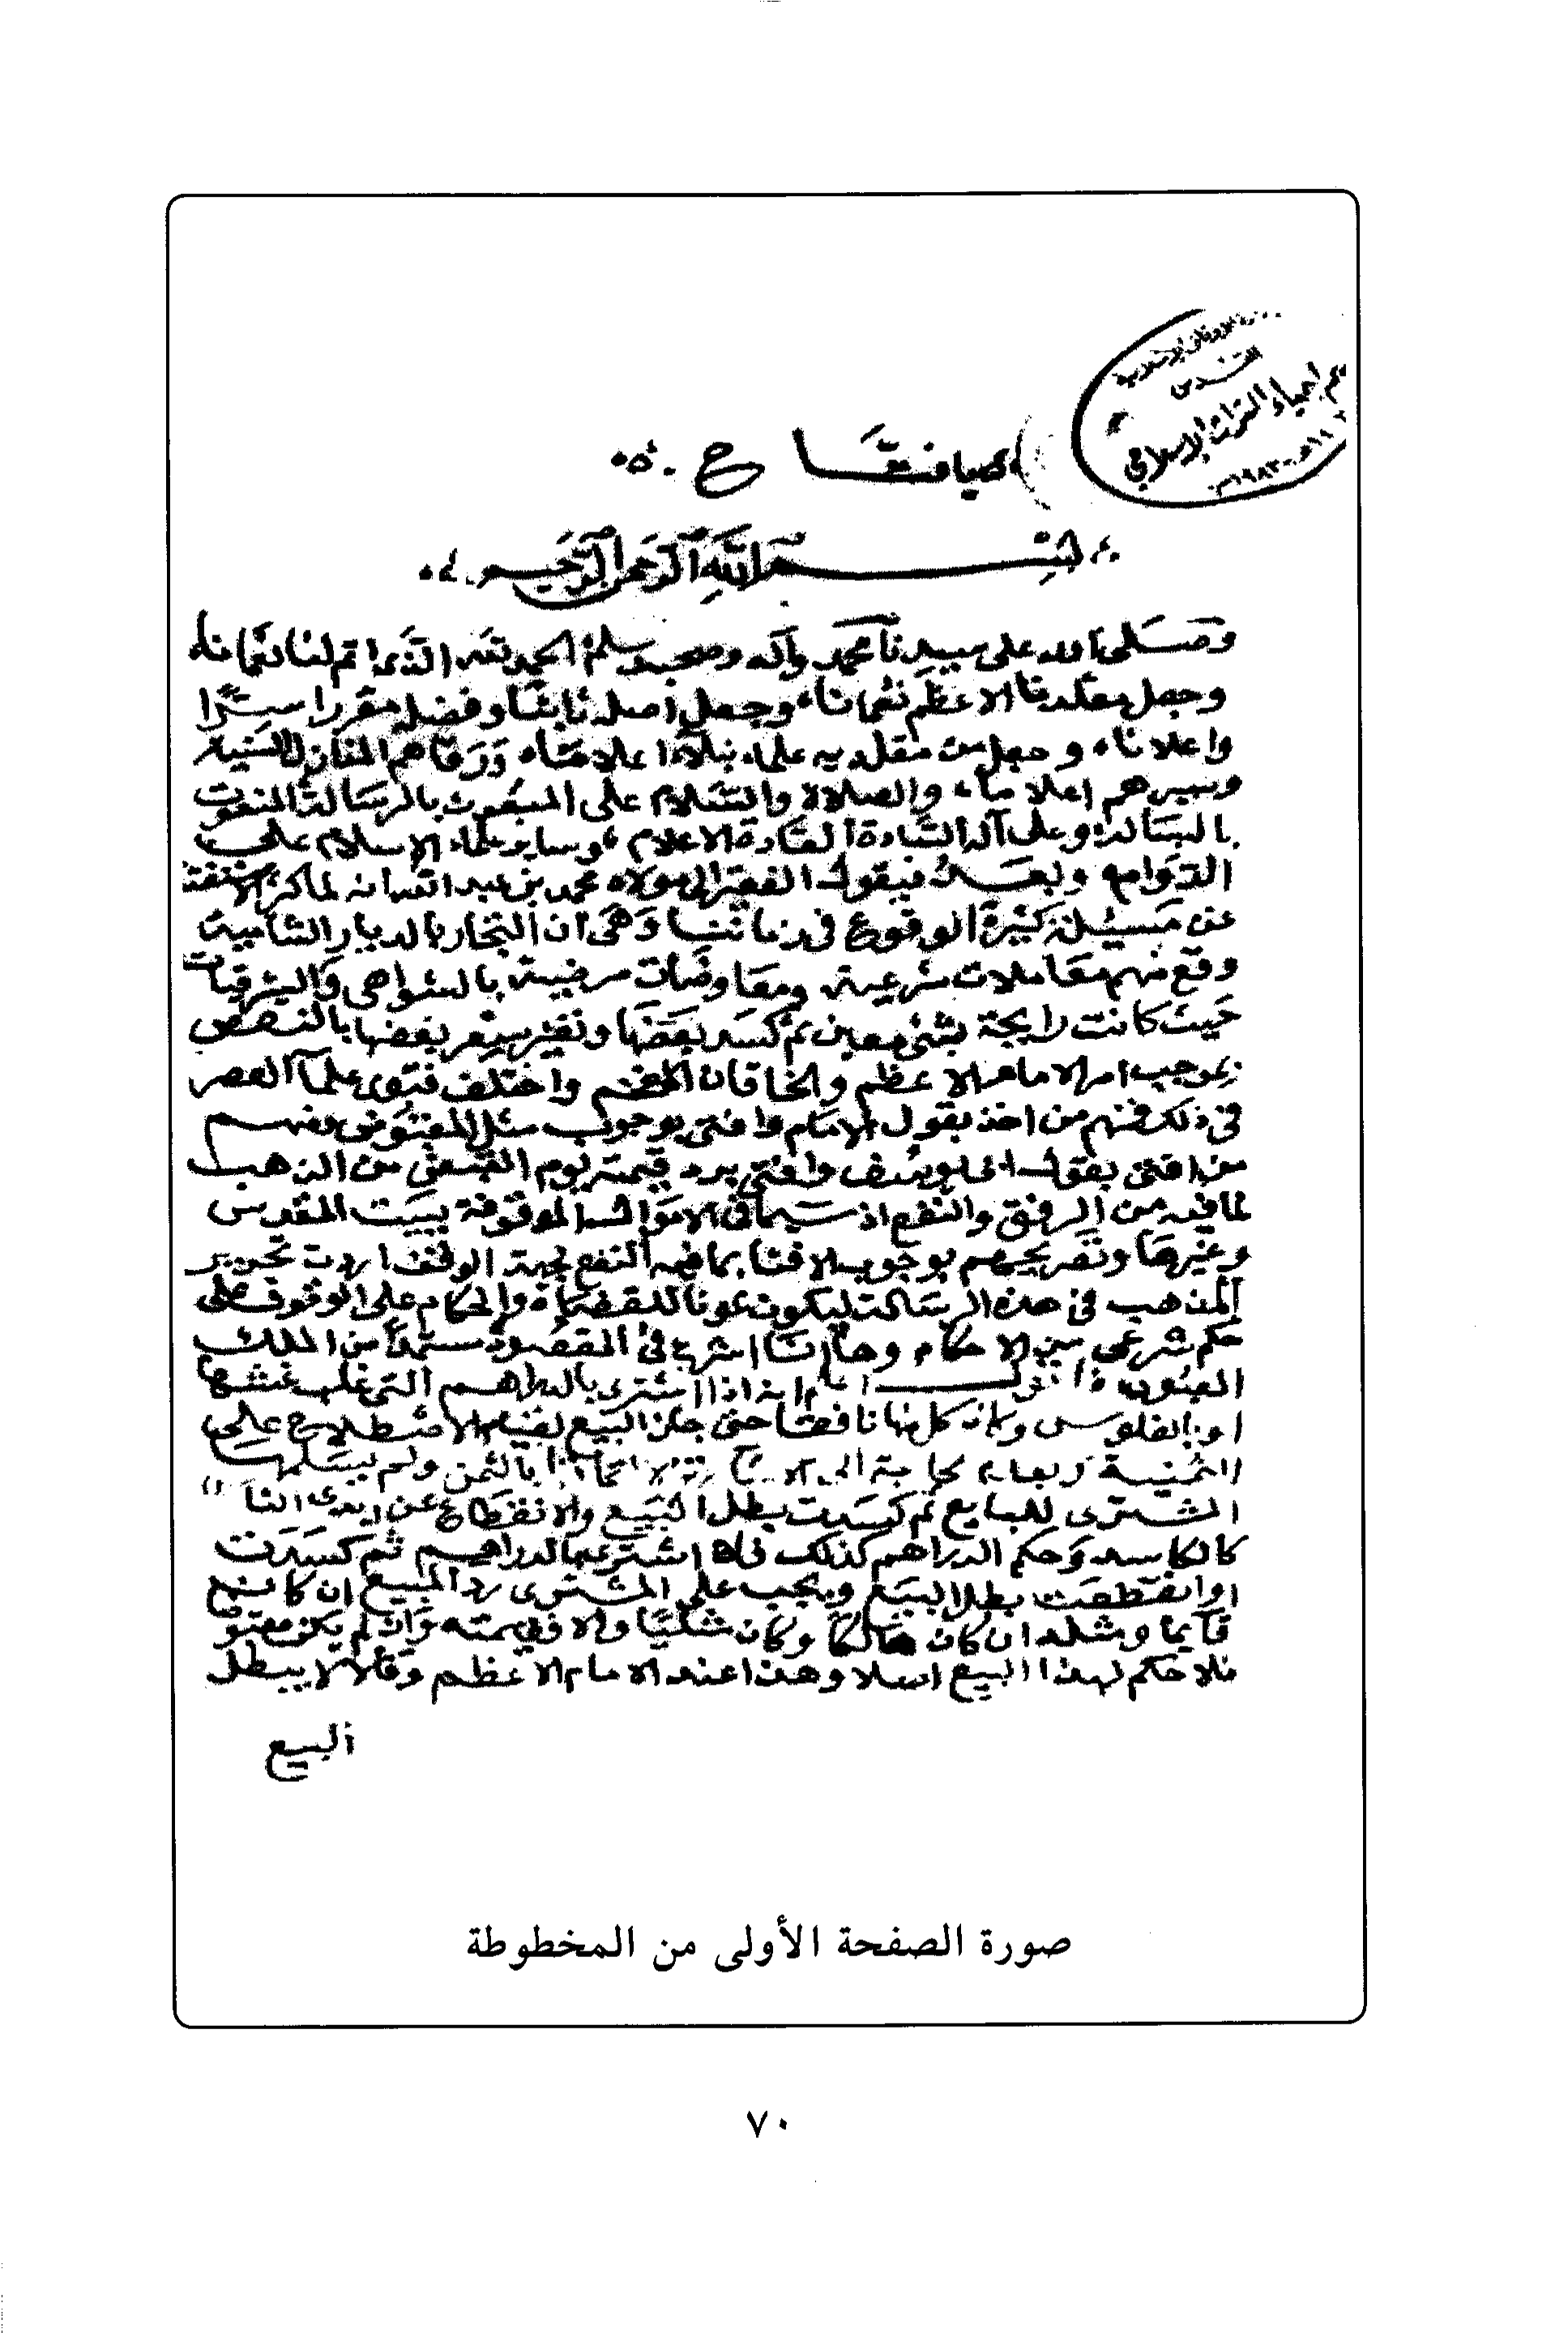 القدس
إحياء التراث الإسلامي
بسم الله الرحمن الرحيم
وصلى الله على سيدنا محمد وآله وصحبه وسلم الحمد لله الذي اتم لنا
وجعل مقلدنا الاعظم نعمانا وجعل اصله ثابتا وفضله مقررا سرا
واعلانا وجعل من مقلديه علماء نبلاء اعلاما ورقاهم المنازل السنية
وصيرهم اعلاما والصلاة والسلام على المبعوث بالرسالة المنعوت
بالبسالة وعلى آله السادة القادة الاعلام وساير علماء الاسلام على
الدوام وبعد فيقول الفقير الى مولاه محمد بن عبد الله لما كثر الاستفتا
عن مسيلة كثيرة الوقوع في زماننا وهي ان التجار بالديار الشامية
وقع منهم معاملات شرعية ومعاوضات مرضية بالشواهي والشرقيات
حيث كانت رايجة بثمن معين ثم كسد بعضها وتغير سعر بعضها بالنقص
بموجب امر الامام الاعظم والخاقان المفخم واختلف فتوى علمآ العصر
في ذلك فمنهم من اخذ بقول الامام وافتى بوجوب مثل المقبوض ومنهم
من افتى بقول ابي يوسف وافتى برد قيمته يوم القبض من الذهب
لما فيه من الرفق والنفع اذ سيما في الاموال الموقوفة ببيت المقدس
وغيرها وتصريحهم بوجوب الافتا بما فيه النفع لجهة الوقف اردت تحرير
المذهب في هذه الرسالة ليكون عونا للقضاة والحكام على الوقوف على
حكم شرعي من الاحكام وحان ان اشرع في المقصود مستمدا من الملك
المعبود فاقول اعلم انه اذا اشترى بالدراهم التي غلب غشها
او بالفلوس وكان كل منها نافقا حتى جاز البيع لقيام الاصطلاح على
الثمنية ولعدم الحاجة الى الاشارة بالثمن ولم يسلمها
المشترى للبايع ثم كسدت بطل البيع والانقطاع عن ايدي الناس
كالكاسد وحكم الدراهم كذلك فاذا اشترى بالدراهم ثم كسدت
او انقطعت بطل البيع ويجب على المشترى رد المبيع ان كان
قآيما ومثله ان كان هالكا وكان مثليا والا فقيمته وان لم يكن مقبوضا
فلا حكم لهذا البيع اصلا وهذا عند الامام الاعظم وقالا لا يبطل
البيع
صورة الصفحة الأولى من المخطوطة
٧٠